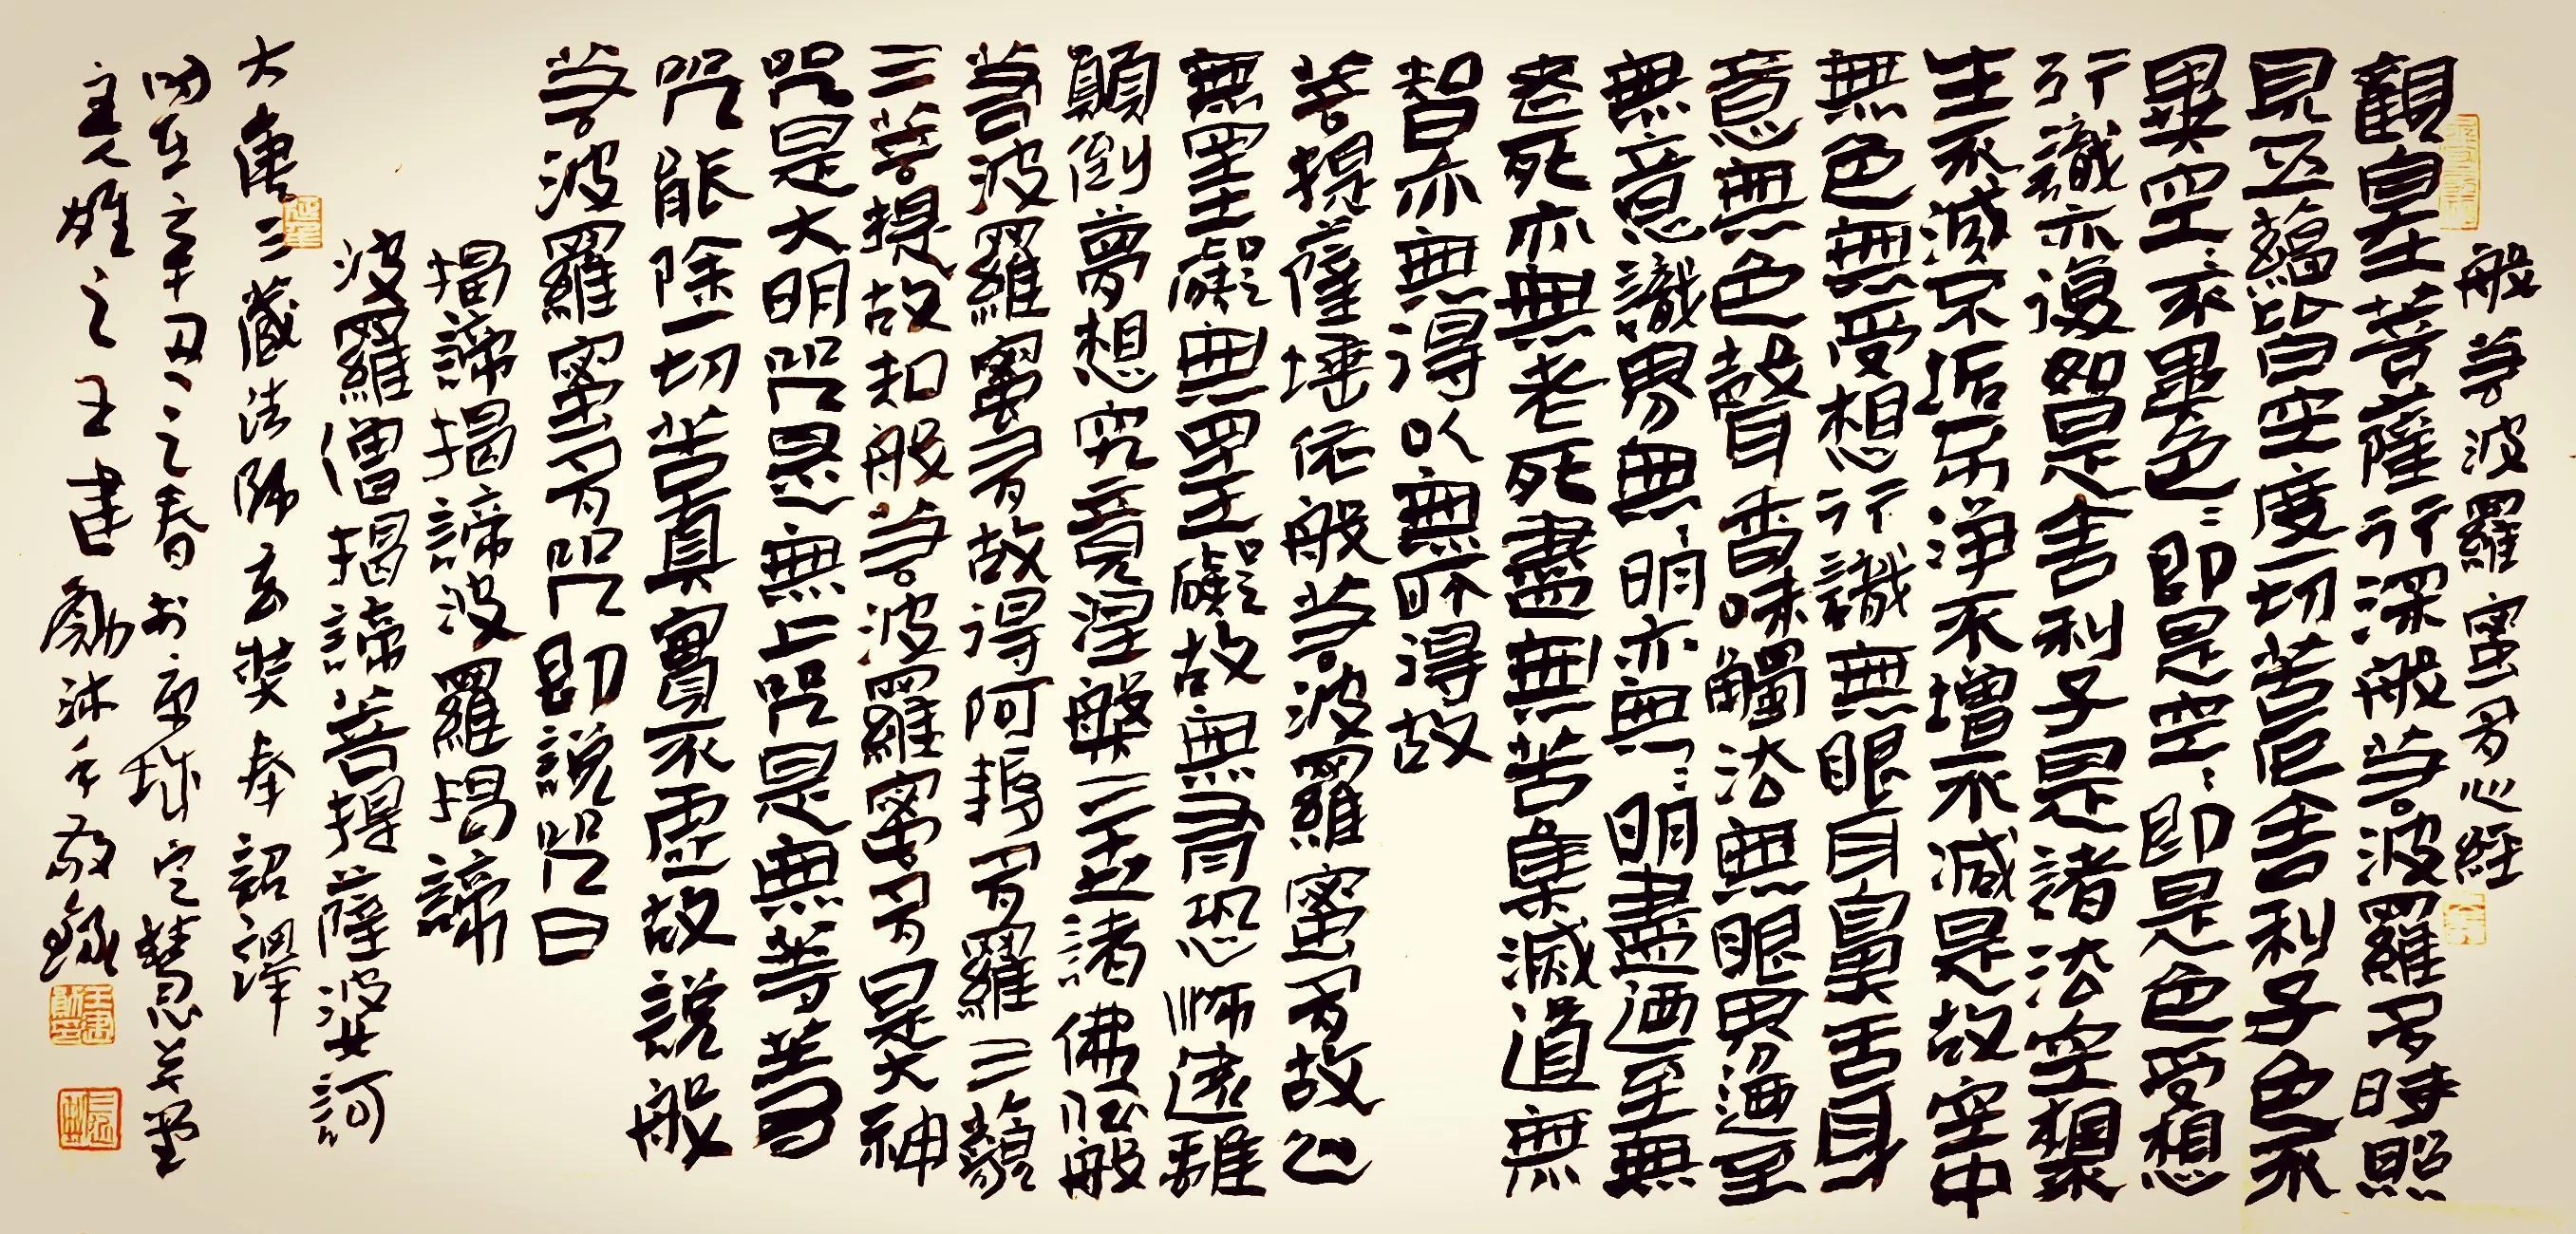 般若波羅蜜多心經
觀自在菩薩行深般若波羅多時照
見五蘊皆空度一切苦厄舍利子色不
異空〻不異色〻即是空〻即是色受想
行識亦復如是舍利子是諸法空相
生不滅不垢不淨不增不減是故空中
無色無受想行識無眼耳鼻舌身
意無色聲香味觸法無眼界迺至
無意識界無無〻明亦無無〻明盡迺至無
老死亦無老死盡無苦集滅道無
智亦無得以無所得故
菩提薩埵依般若波羅蜜多故心
無罣礙無罣礙故無有恐怖遠離
顛倒夢想究竟涅槃三世諸佛依般
若波羅蜜多故得阿耨多羅三藐
三菩提故知般若波羅蜜多是大神
咒是大明咒是無上咒是無等等
咒能除一切苦真實不虛故說般
若波羅蜜多咒即說咒曰
揭諦揭諦波羅揭諦
波羅僧揭諦菩提薩婆訶
大唐三藏法師玄奘奉詔譯
時在辛丑之春於京城定慧草堂
主人雄之王書勳沐手敬錄